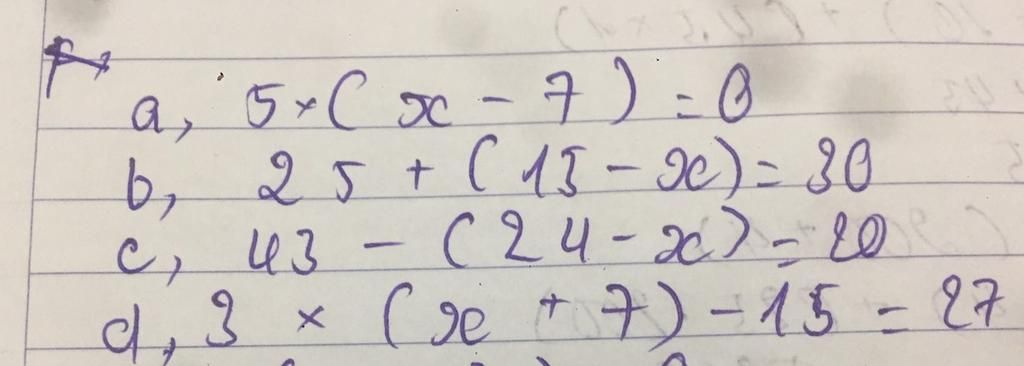 a, 5 × ( x - 7 ) = 0
b, 25 + ( 15 - x ) = 30
c, 43 - ( 24 - x ) = 20
d, 3 × ( x + 7 ) - 15 = 27